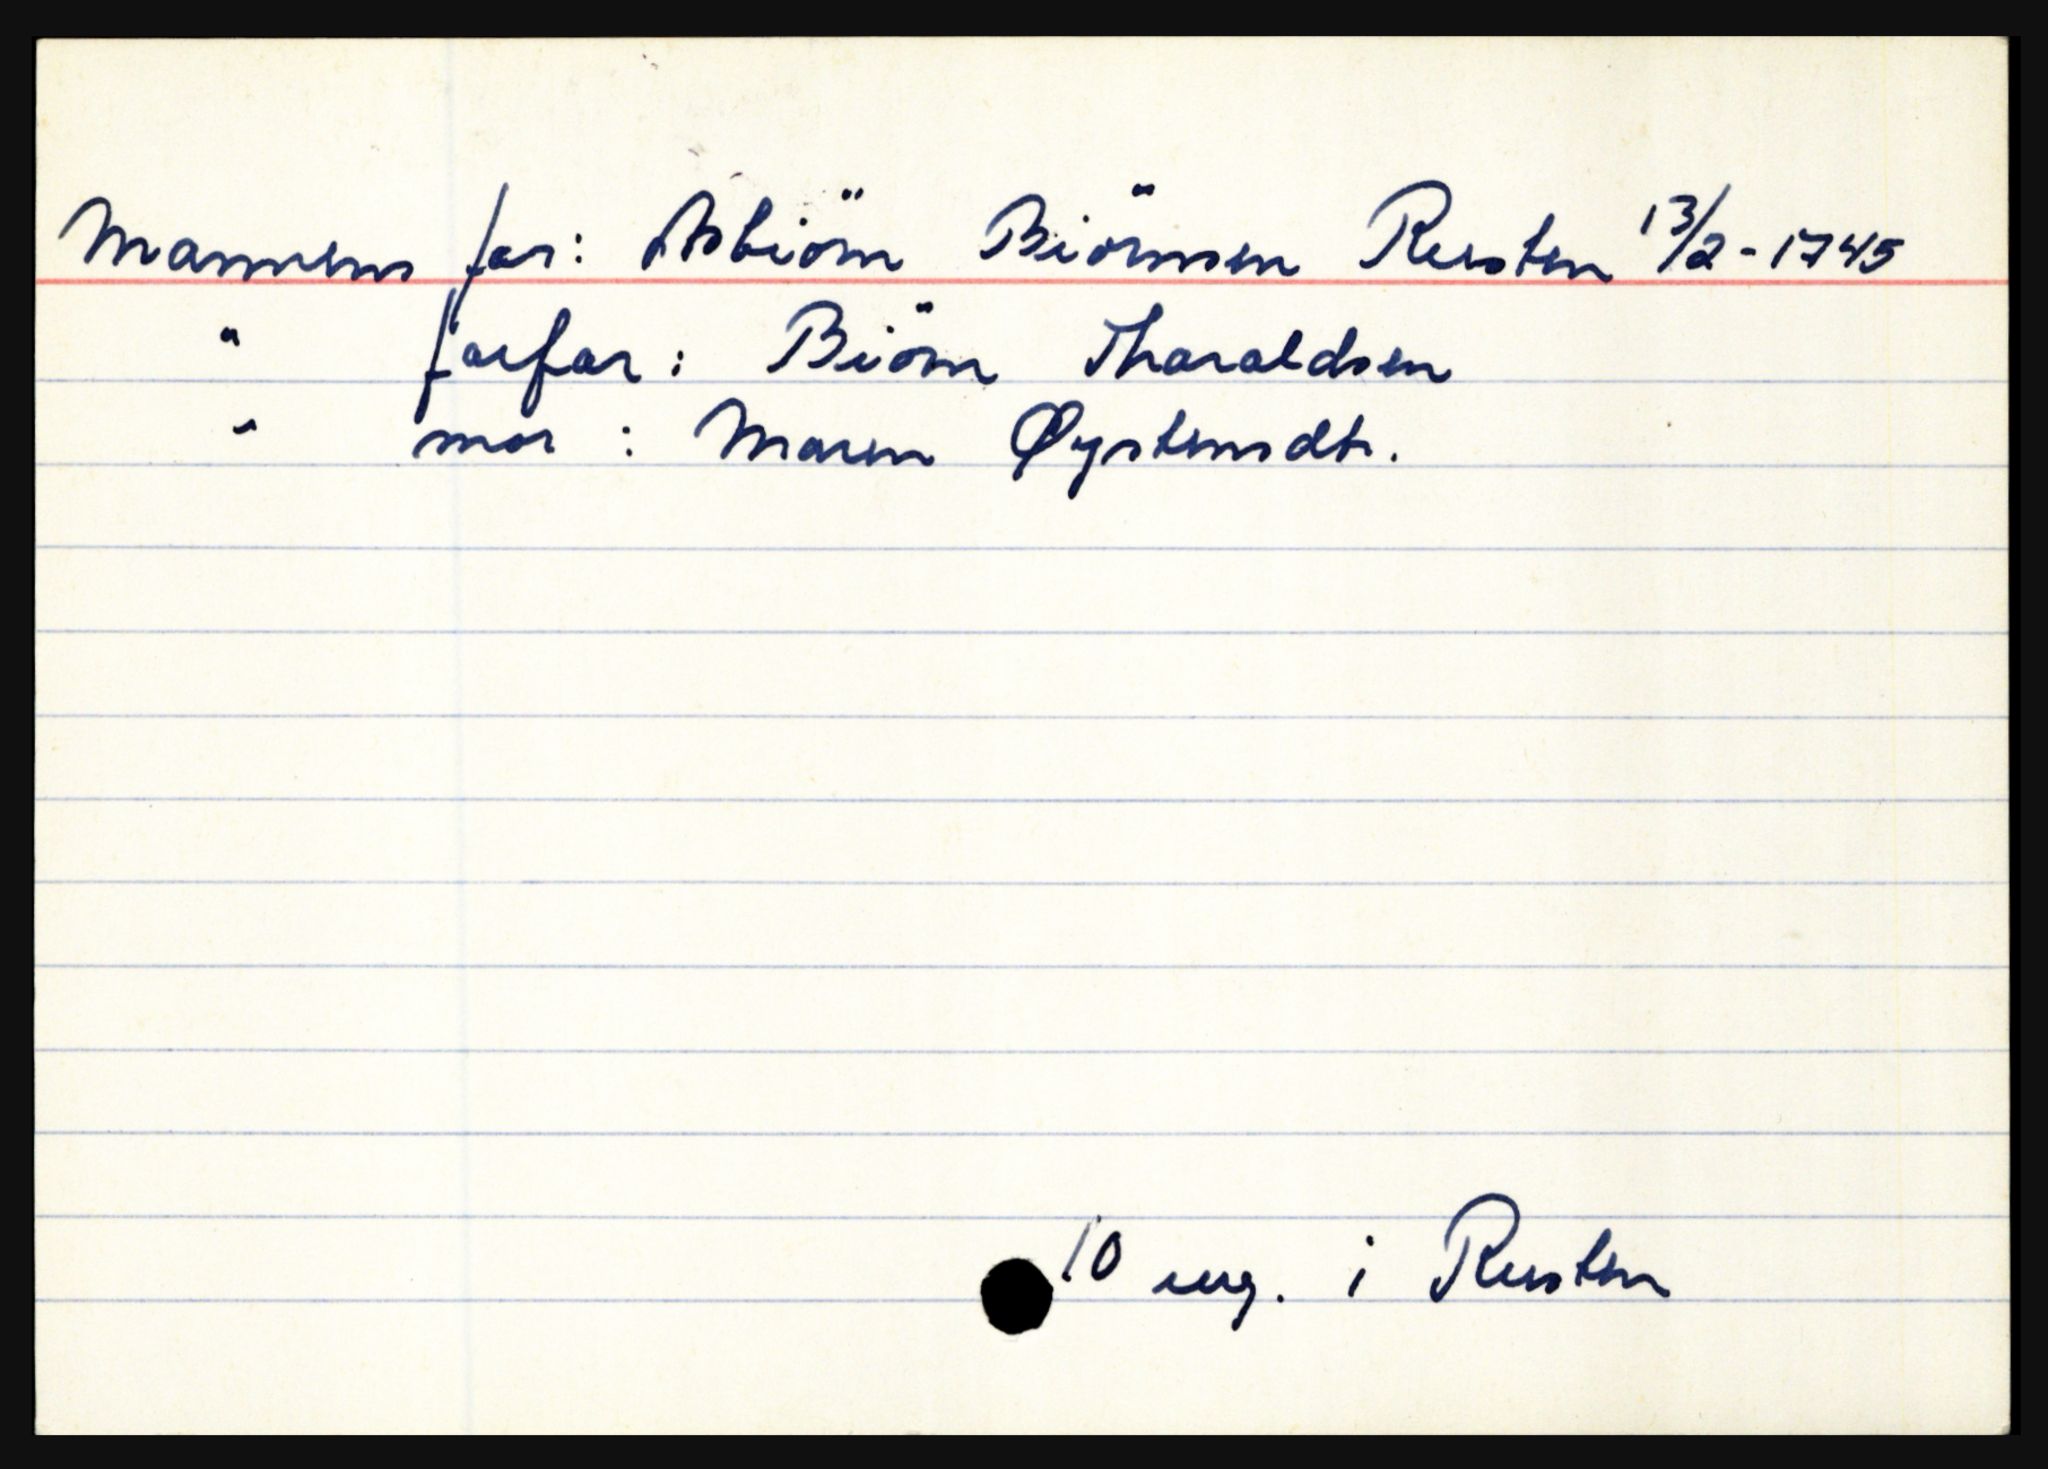 Mannens far: Asbiörn Biörnsen Resten 13/2-1745
" farfar: Biörn Tharaldsen
" mor: Maren Øystensdtr.
10 ug. i Resten